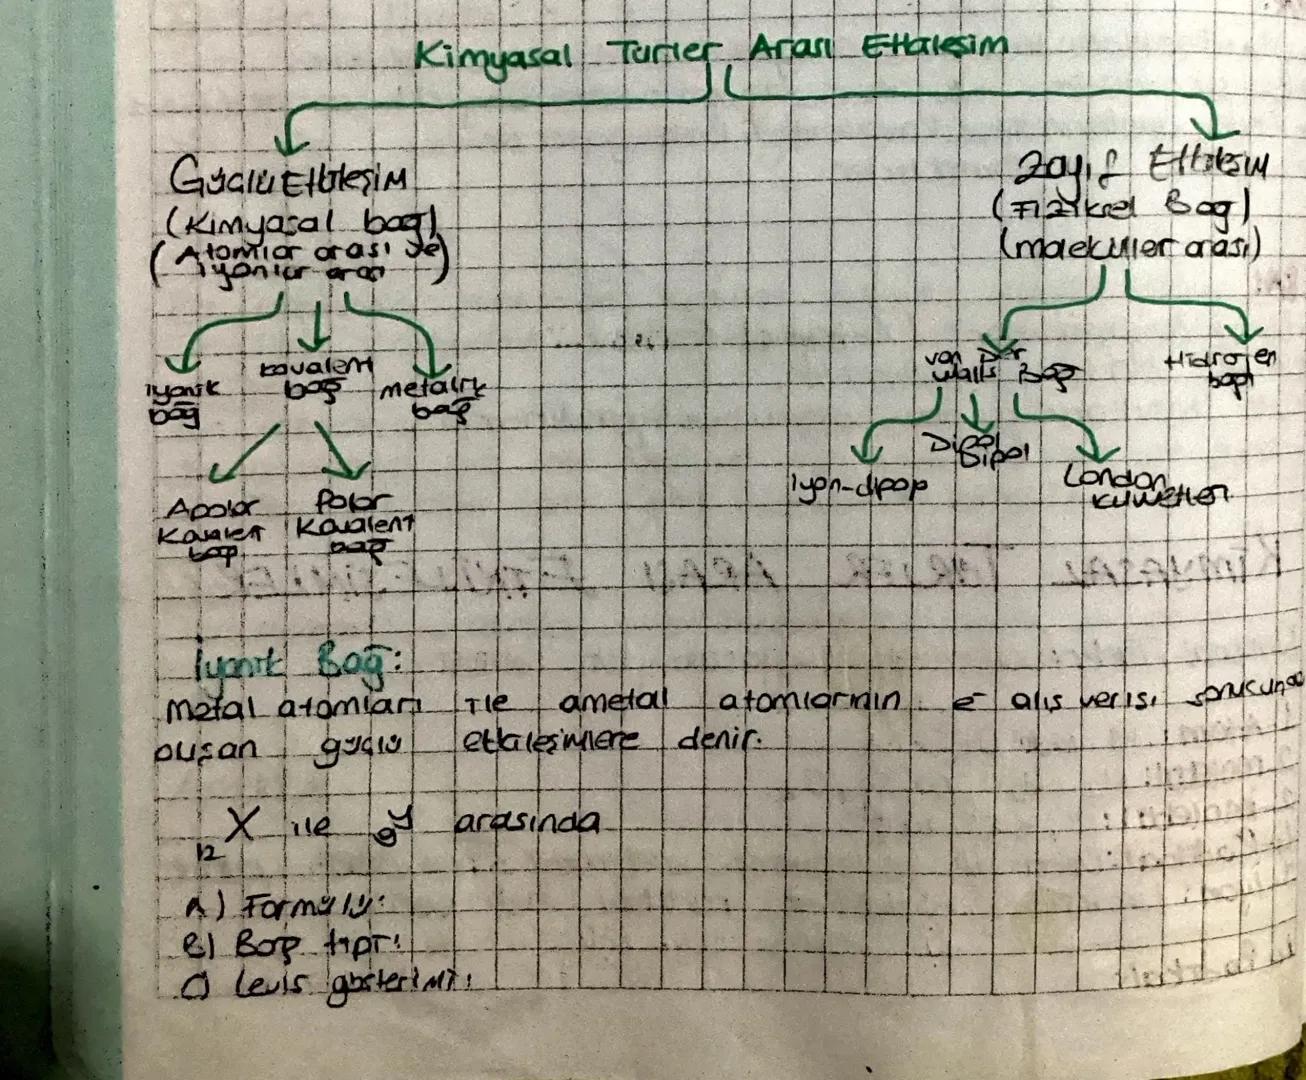 Kimyasal Türler Arası Etkileşim
Güçlü Etkileşim
(Kimyasal bağ)
(Atomlar arası ve
iyonlar arası)
Zayıf Etkileşim
(Fiziksel Bağ)
(moleküller arası)
iyonik
bağ
kovalent
bağ
metalik
bağ
Apolar
Kovalent
bağ
Polar
Kovalent
bağ
van der
walls Bağ
Hidrojen
bağı
iyon-dipop
Dipol
Dipol
London
kuvvetleri
İyonik Bağ:
Metal atomları ile ametal atomlarının e⁻ alış verişi sonucunda
oluşan güçlü etkileşimlere denir.
₁₂X ile ₉Y arasında
A) Formülü:
B) Bağ tipi:
C) Levis gösterimi: